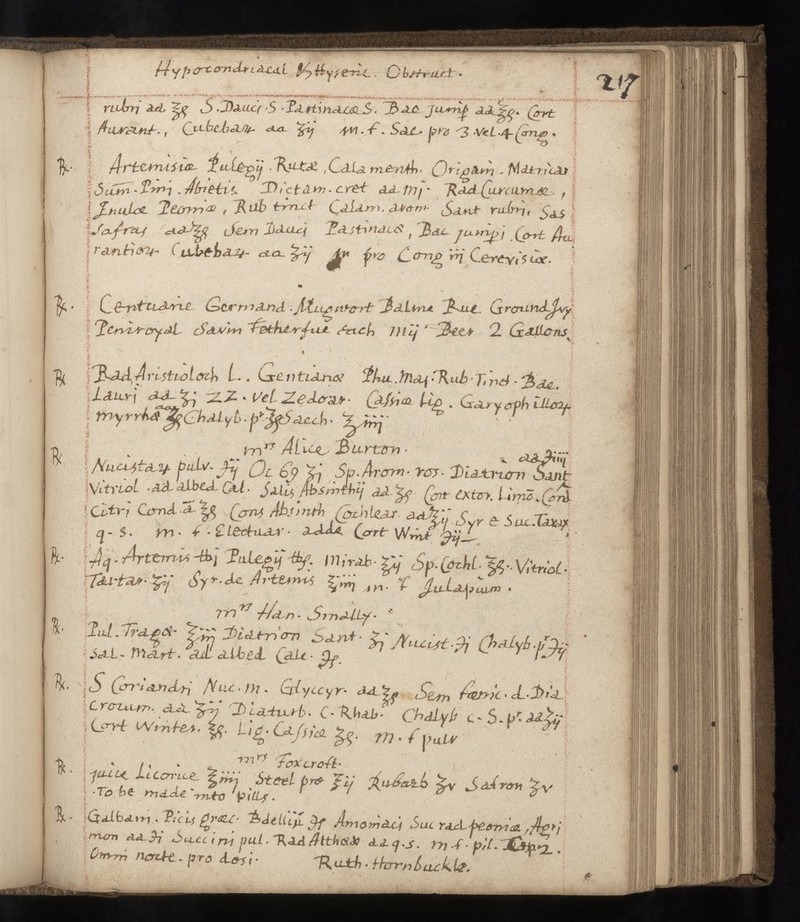 Hypocondriacal & Hysteric. Obstruct.
217
rubri aa ℥ß S. Dauci S. Pastinacæ S. Bac Junip̄ aa ℥ß. Cort
Aurant., Cubebaꝝ aa ʒij m. f. Sac pro 3 vel 4 Cong.
℞. Artemisiæ Pulegij. Rutæ, Calamenth. Origani. Matricar
Sum̄. Pini. Abietis Dictam. cret aa mj. Rad Curcumæ,
Enulæ Peoniæ, Rub tinct Calam. arom Sant rubri, Sas
safras aa ℥ß Sem Dauci Pastinacæ, Bac junip̄i Cort Au
rantioꝝ Cubebaꝝ aa ʒij pro Cong iij Cerevisiæ.
℞. Centuarie Germand. Mugwort Balme Rue Ground Ivy
Peniroyal Savin Fetherfue each mij Beer 2 Gallons.
℞ Rad Aristioloch L. Gentianæ Phu. Maj. Rub. Tinct. Bac.
Lauri aa ʒj ZZ. vel Zedoar. Cassiæ Lig. Garyophilloꝝ
myrrhæ aa ʒß Chalyb. pr ℥ß Sacch. ℥iiij
mrs Alice Burton.
℞ Nucistaꝝ pulv. ℈ij Oc 69 ʒj Sp. Arom. ros. Diatrion Sant aa ℈iiij
Vitriol. ad albed Cal. Salis Absinthij aa ʒß Cort exter. Limō. Cond
Citri Cond. ā ℥ß Cons Absinth Cochlear. aa ℥ij Syr e Suc.
q. s. m. f. Electuar. adde Cort Wint ℈ij
℞. Aq. Artemis ℔j Pulegij ℔ß. Mirab. ℥ij Sp. Cochl. ℥ß. Vitriol.
Tartar. ʒij Syr. de Artemis ℥iiij m. f Julapium.
mrs Han. Smally.
℞. Pul. Tragæ. ℥iij Diatrion Sant. ʒj Nucist. ℈j Chalyb. pr ℈ij
Sal. Mart. ad albed Calc. ℈ß.
℞. S Coriandri Nuc. m. Glyccyr. aa ʒß Sem fœnic. d. Dia
crocum. aa ʒij Diaturb. c. Rhab. Chalyb c. S. pr. aa ʒij
Cort Winter. ʒß. Lig. Cassiæ ʒß. m. f pulv
mrs Foxcroft.
℞. juice Licorice ℥iiij Steel pre ℥ij Rubarb ʒv Safron ʒv
To be made into pills.
℞. Galbani. Picis græc. Bdellij ℈ß Amoniaci Suc rad peoniæ, Agri
mon aa ℈i Succini pul. Rad Altheæ aa q. s. m. f. pil. 2.
Omni nocte. pro dosi. Ruth. Hornbuckle.